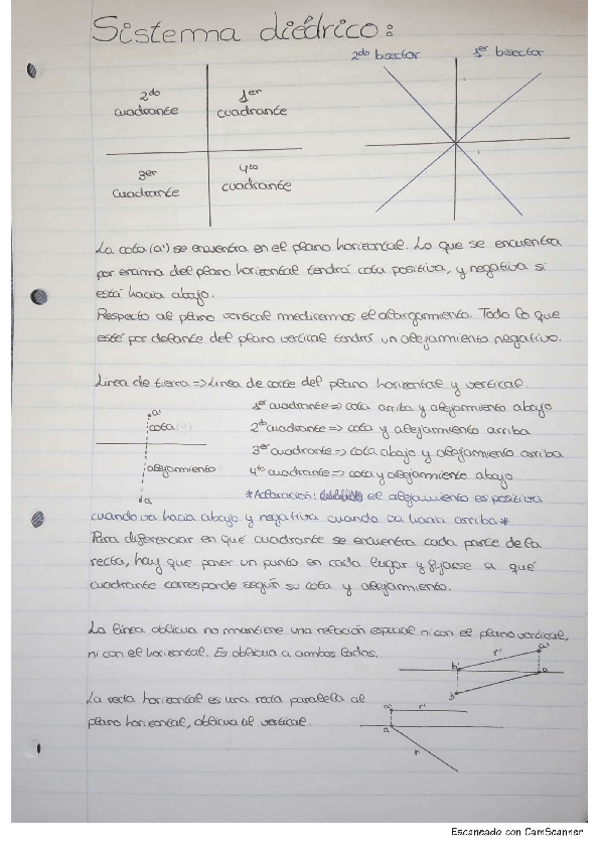 Sistema diédrico:
2do bisector
1er bisector
2do cuadrante
1er cuadrante
3er cuadrante
4to cuadrante
La cota (a') se encuentra en el plano horizontal. Lo que se encuentra
por encima del plano horizontal tendrá cota positiva, y negativa si
está hacia abajo.
Respecto al plano vertical mediremos el alargamiento. Todo lo que
esté por delante del plano vertical tendrá un alejamiento negativo.
Línea de tierra => Línea de corte del plano horizontal y vertical.
a'
cota
alejamiento
a
1er cuadrante => cota arriba y alejamiento abajo
2do cuadrante => cota y alejamiento arriba
3er cuadrante => cota abajo y alejamiento arriba
4to cuadrante => cota y alejamiento abajo
*Aclaración: el alejamiento es positiva
cuando va hacia abajo y negativa cuando va hacia arriba*
Para diferenciar en qué cuadrante se encuentra cada parte de la
recta, hay que poner un punto en cada lugar y fijarse a qué
cuadrante corresponde según su cota y alejamiento.
La línea oblicua no mantiene una relación especial ni con el plano vertical,
ni con el horizontal. Es oblicua a ambos lados.
a'
r'
b'
a
b
La recta horizontal es una recta paralela al
plano horizontal, oblicua al vertical.
a'
r'
a
r
Escaneado con CamScanner